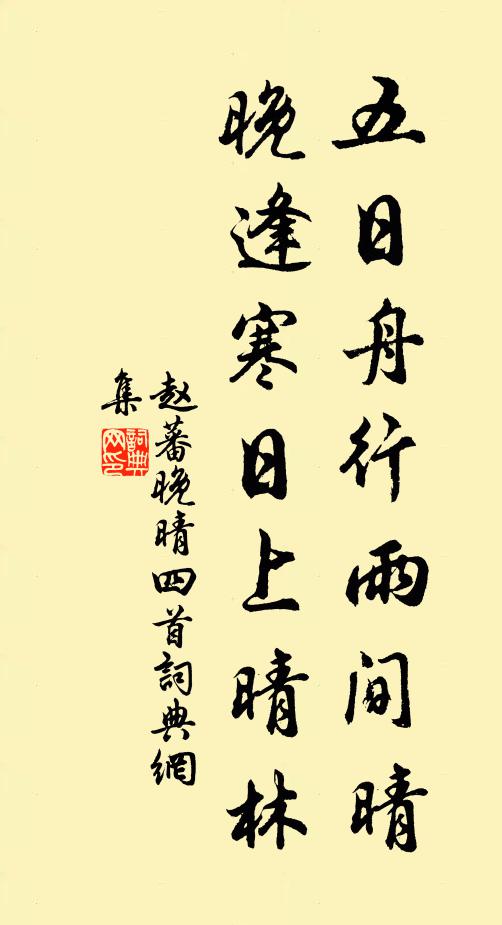 五日舟行雨间晴
晚逢寒日上晴林
赵蕃晚晴四首詞典網
集
詞典
网印